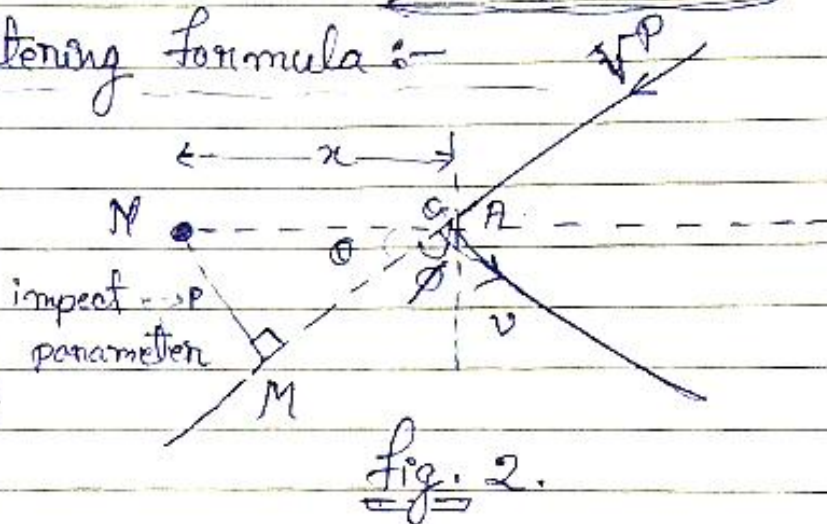 tering formula :-
V P
x
N
G A
θ
φ
impect P
parameter
v
M
fig. 2.